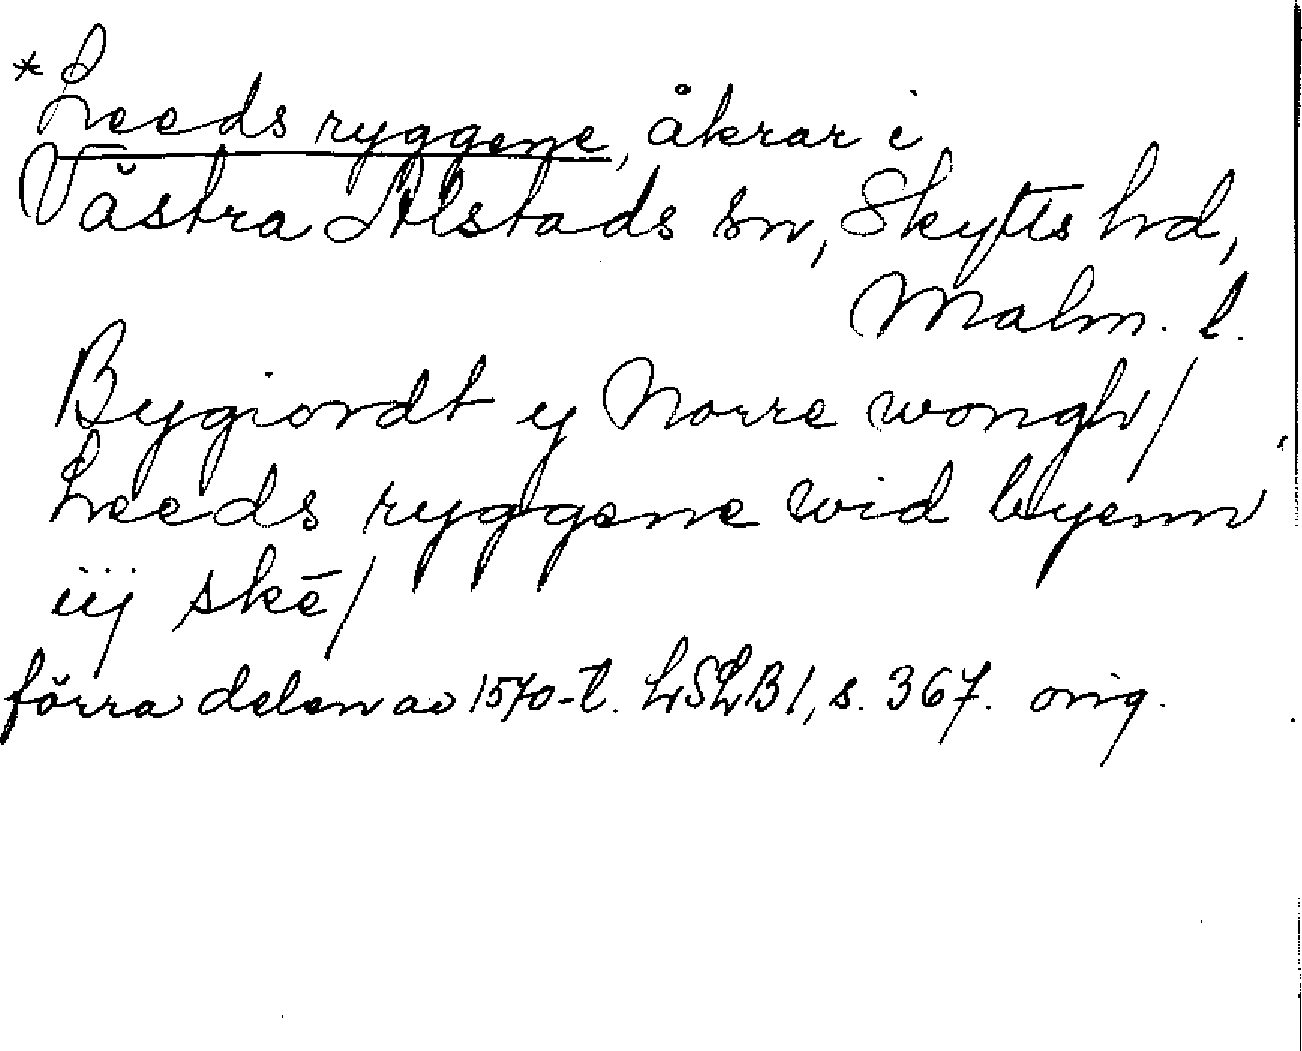 *Leeds ryggene, åkrar i
Västra Alstads sn, Skytts hd,
Malm. l.
Bygiordt y Norre wongh/
Leeds ryggene wid byenn
iij skē/
förra delen av 1570-t. LSLB1, s. 367. orig.